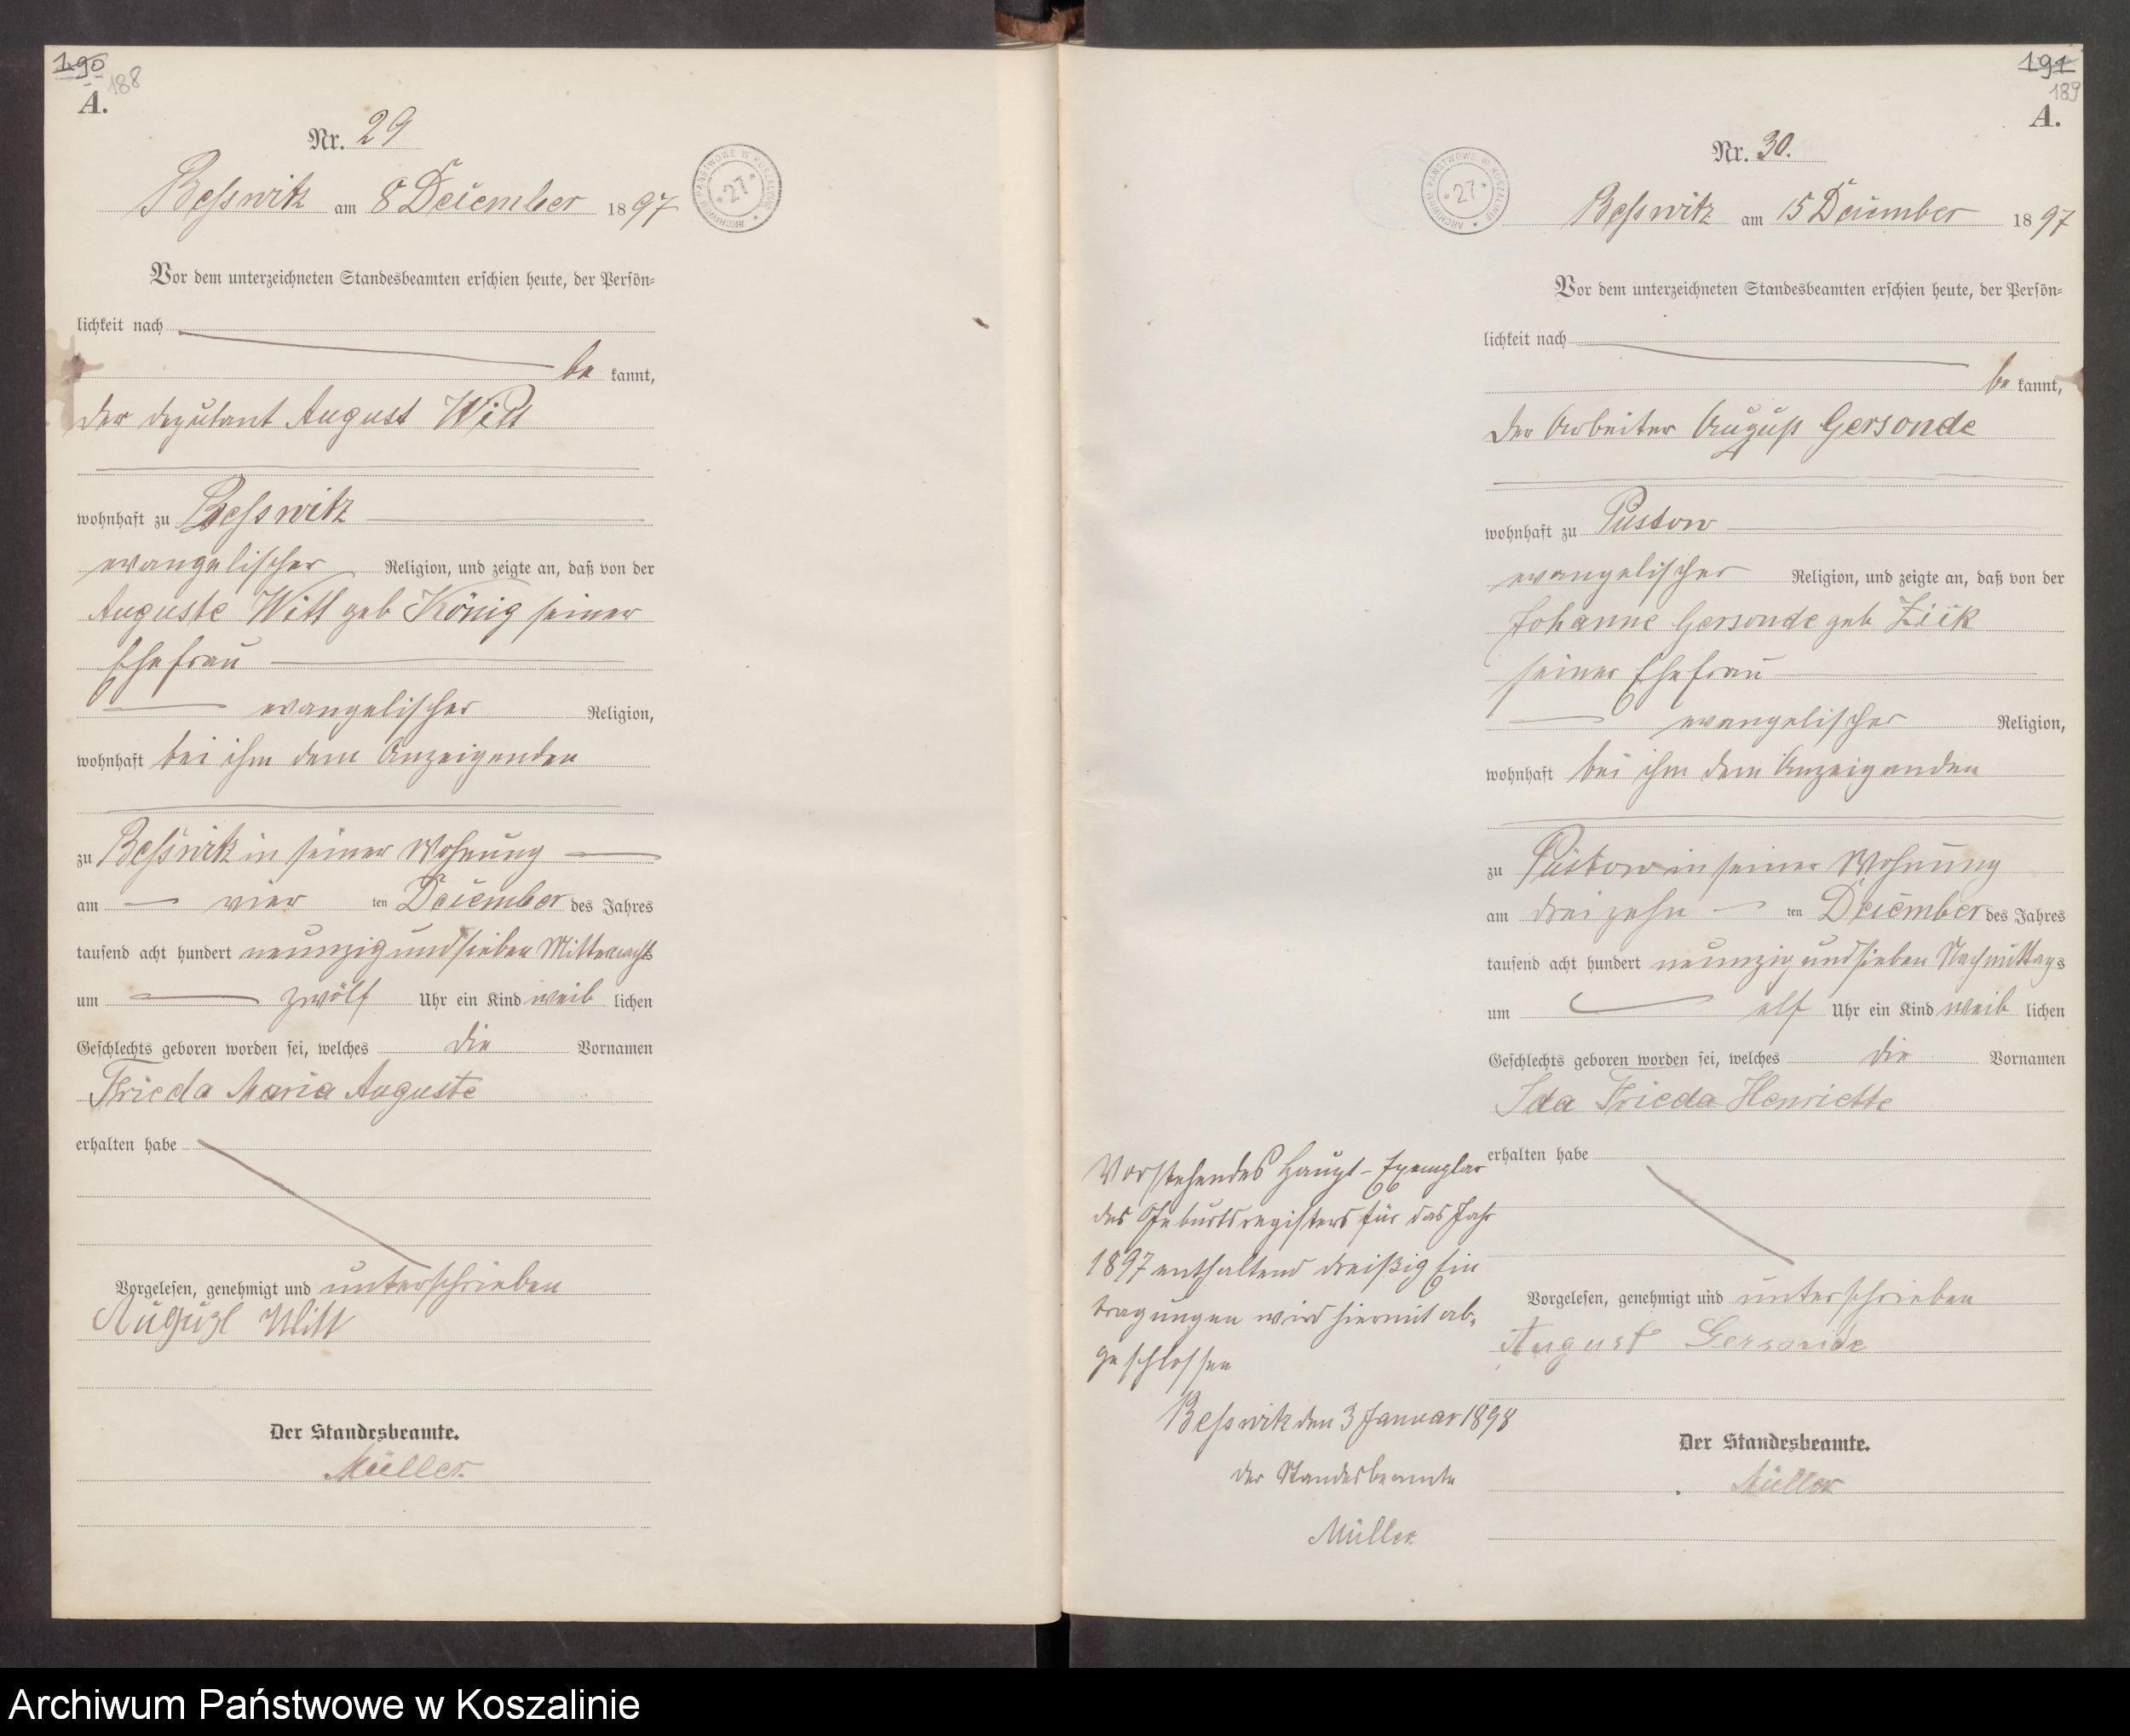 190
188
A.
Nr. 29
Besswitz am 8 December 1897
ARCHIWUM PAŃSTWOWE W KOSZALINIE * 27 *
Vor dem unterzeichneten Standesbeamten erschien heute, der Persön-
lichkeit nach
be kannt,
der Deputant August Witt
wohnhaft zu Besswitz
evangelischer Religion, und zeigte an, daß von der
Auguste Witt geb König seiner
Ehefrau
evangelischer Religion,
wohnhaft bei ihm dem Anzeigenden
zu Besswitz in seiner Wohnung
am vier ten December des Jahres
tausend acht hundert neunzig und sieben Mitternachts
um zwölf Uhr ein Kind weib lichen
Geschlechts geboren worden sei, welches die Vornamen
Frieda Maria Auguste
erhalten habe
Vorgelesen, genehmigt und unterschrieben
August Witt
Der Standesbeamte.
Müller.
191
189
A.
Nr. 30.
ARCHIWUM PAŃSTWOWE W KOSZALINIE * 27 *
Besswitz am 15 December 1897
Vor dem unterzeichneten Standesbeamten erschien heute, der Persön-
lichkeit nach
be kannt,
der Arbeiter August Gersonde
wohnhaft zu Pustow
evangelischer Religion, und zeigte an, daß von der
Johanne Gersonde geb
seiner Ehefrau
evangelischer Religion,
wohnhaft bei ihm dem Anzeigenden
zu Püstow in seiner Wohnung
am dreizehn ten December des Jahres
tausend acht hundert neunzig und sieben Nachmittags
um elf Uhr ein Kind weib lichen
Geschlechts geboren worden sei, welches die Vornamen
Ida Frieda Henriette
erhalten habe
Vorgelesen, genehmigt und unterschrieben
August Gersonde
Der Standesbeamte.
Müller
Vorstehendes Haupt-Exemplar
des Geburtsregisters für das Jahr
1897 enthaltend dreißig Ein
tragungen wird hiermit ab-
geschlossen
Besswitz den 3 Januar 1898
der Standesbeamte
Müller.
Archiwum Państwowe w Koszalinie